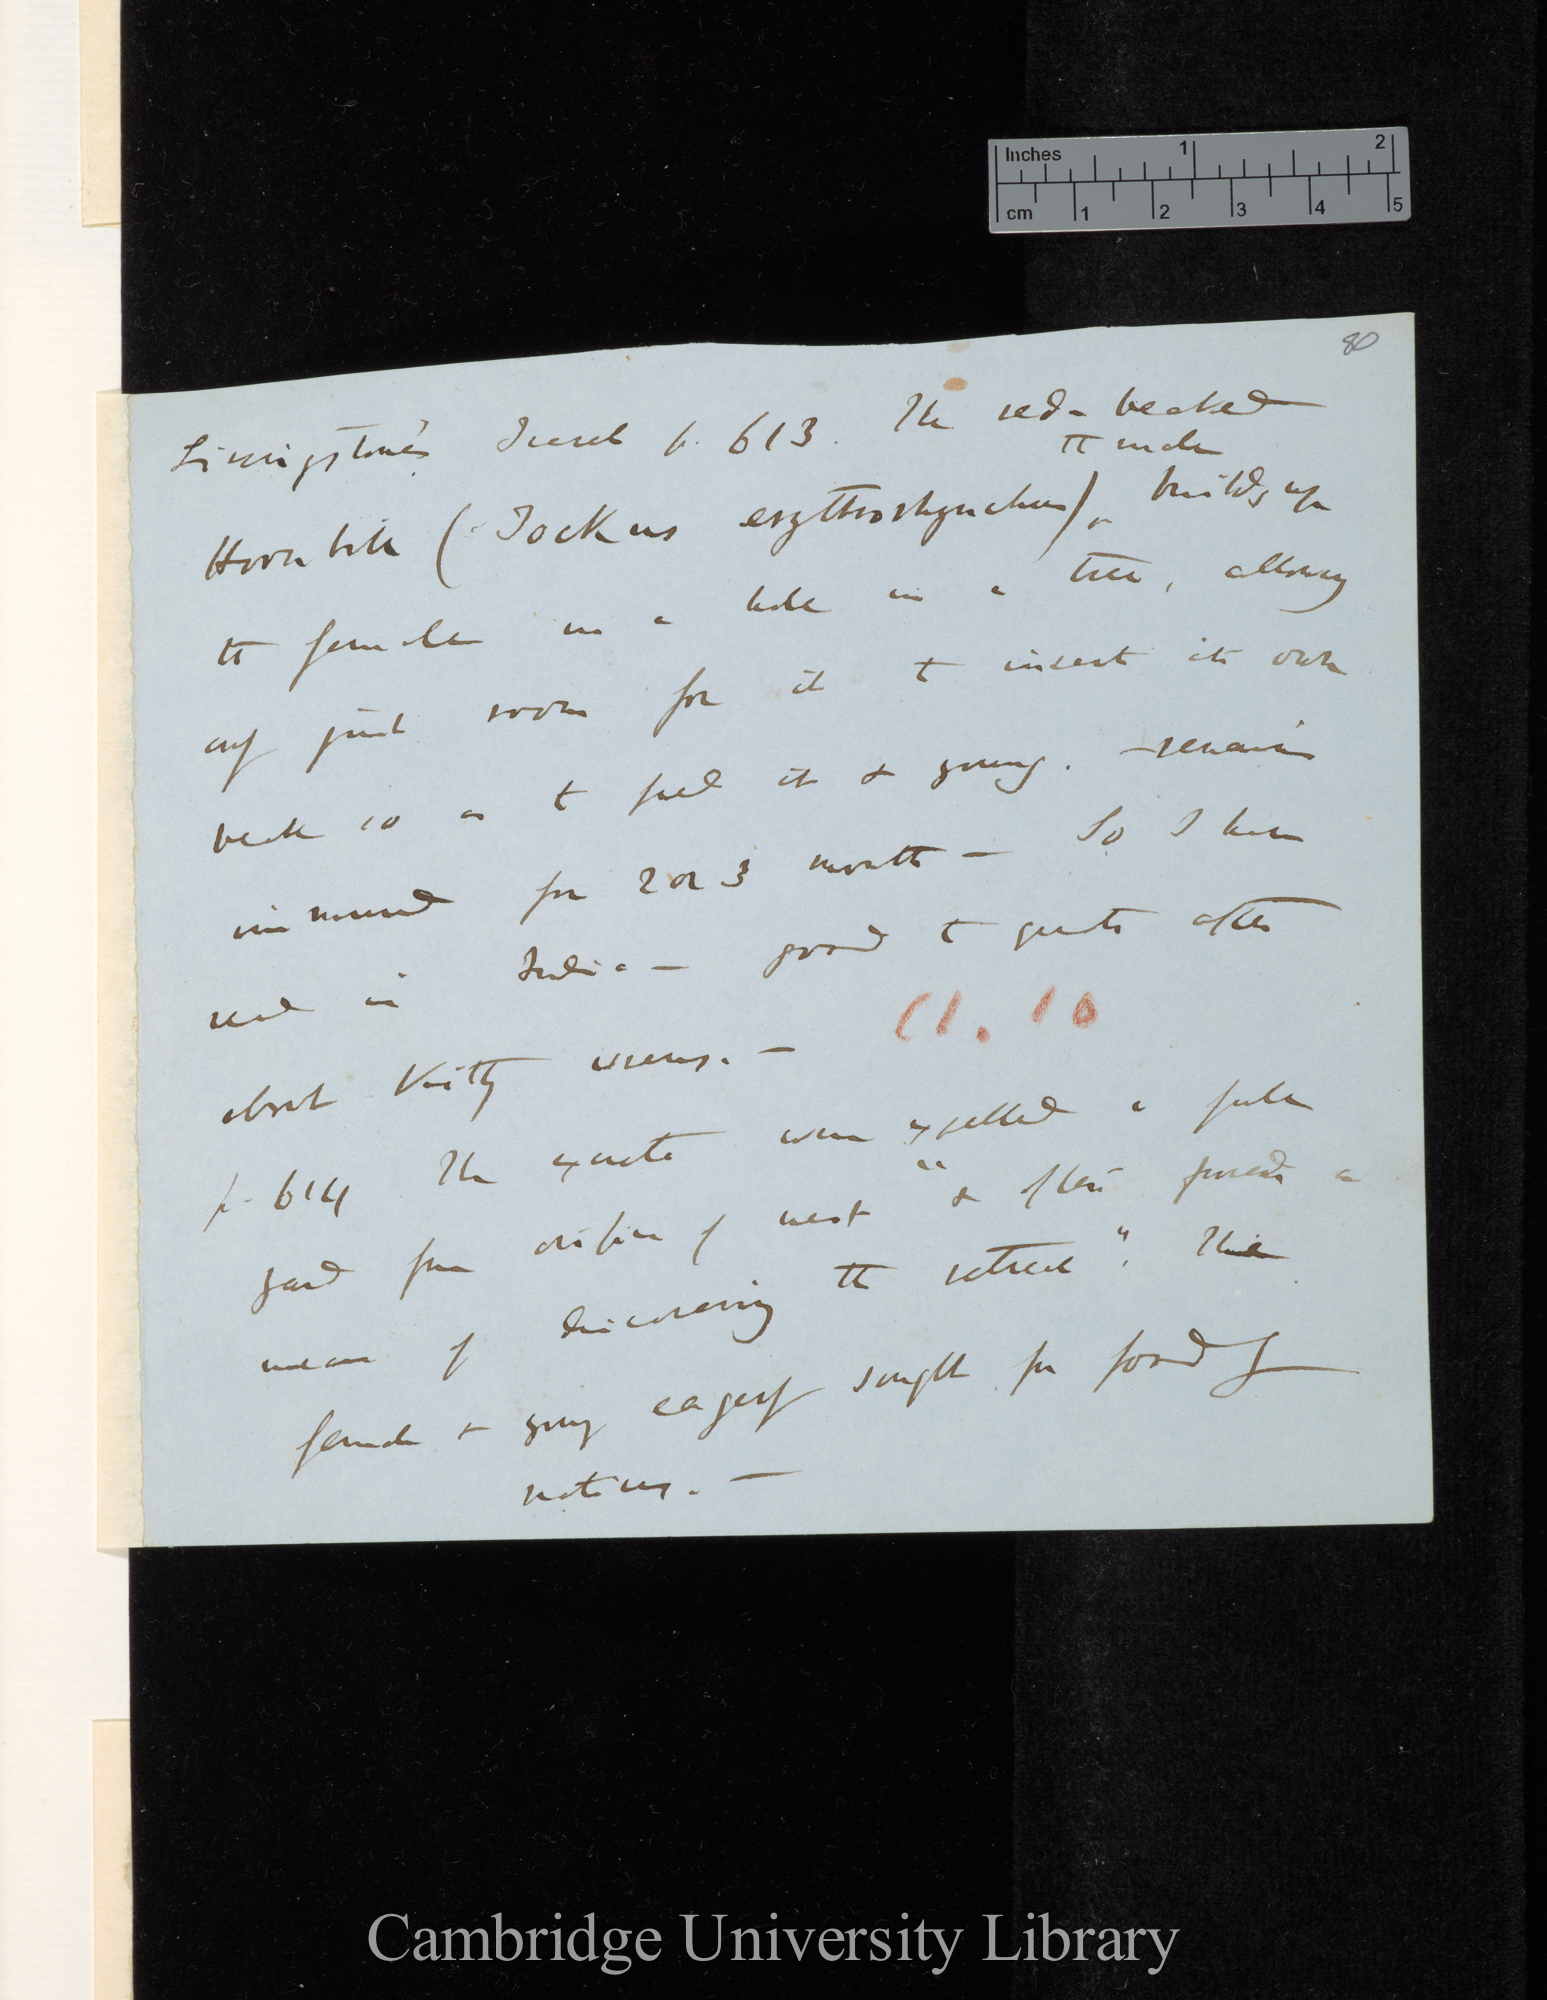 Inches 1 2
cm 1 2 3 4 5
80
Livingstone's Travels p. 613. The red-beaked
the male
Hornbill (Tockus erythrorhynchus), builds up
the female in a hole in a tree, allowing
only just room for it to insert its own
beak so as to feed it & young. — remains
immured for 2 or 3 months — So I have
read in India — good to quote after
about Kitty wrens. —
Ch. 10
p. 614 The excreta were expelled a full
yard from orifice of nest "& often proved a
means of discovering the retreat".
female & young eagerly sought for food by
natives. —
Cambridge University Library